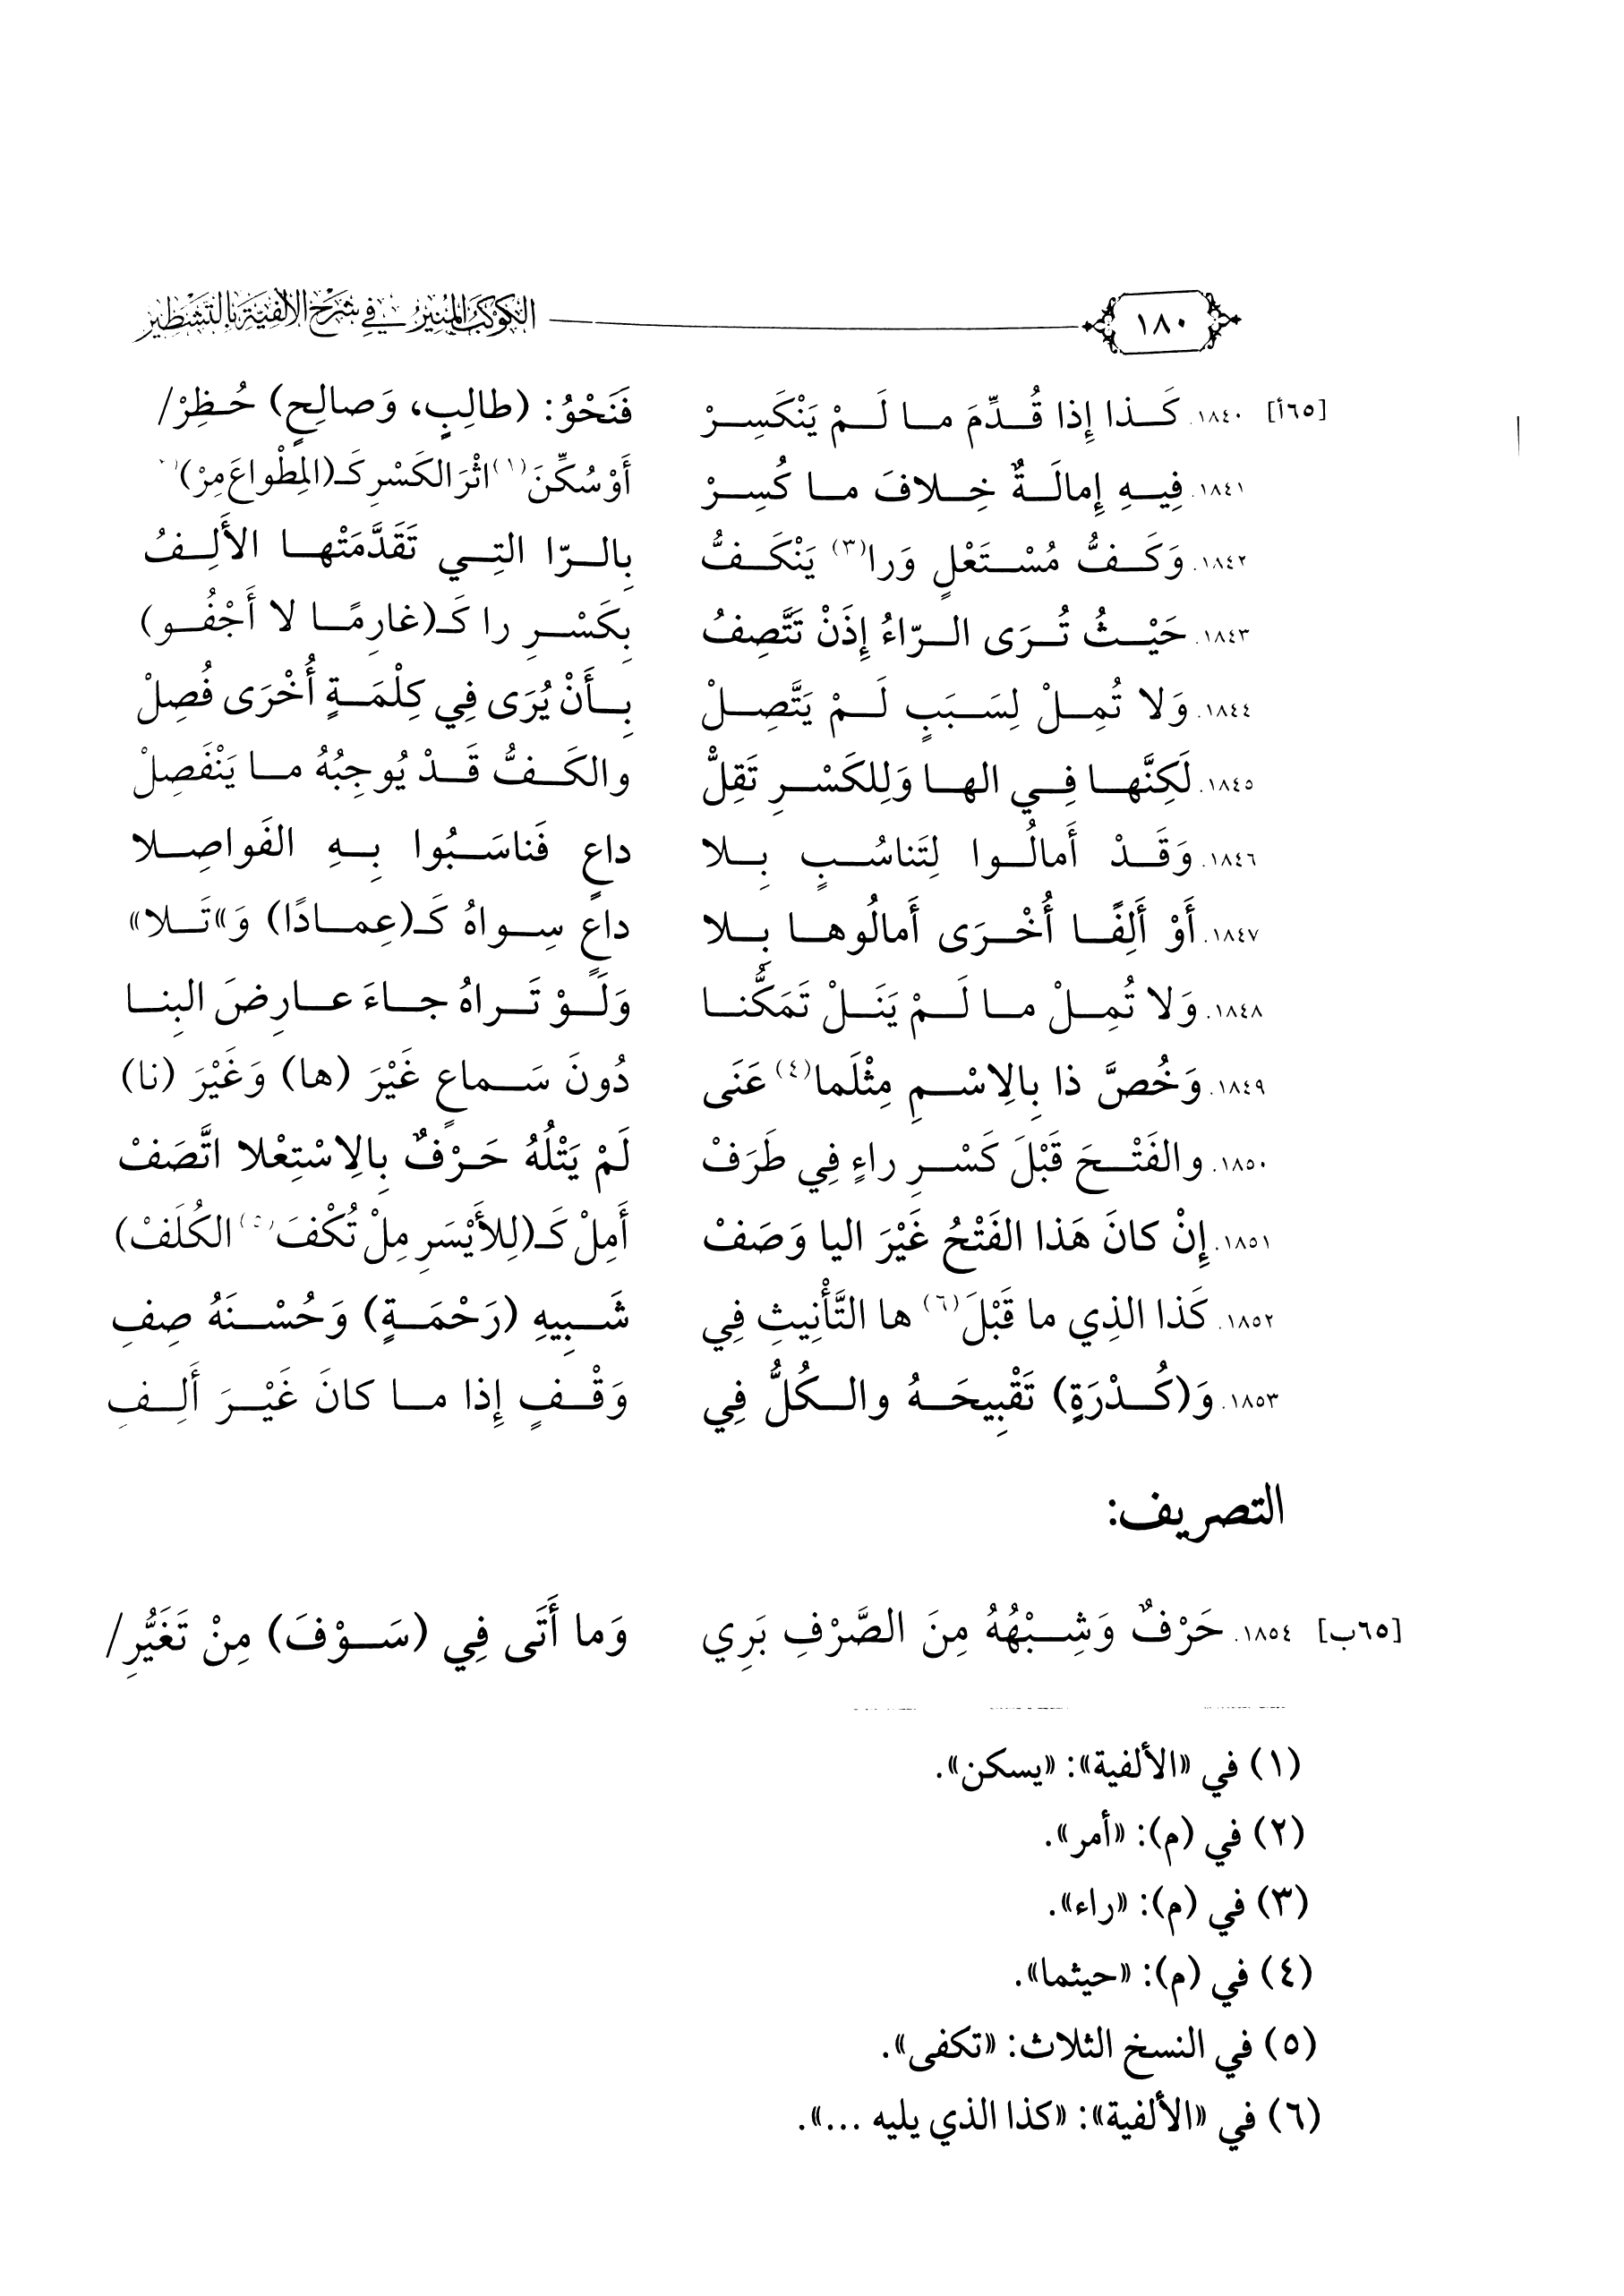 ١٨٠ الكوكب المنير في شرح الألفية بالتشطير
[٦٥أ] ١٨٤٠. كَـذا إِذا قُـدِّمَ مـا لَـمْ يَنْكَسِـرْ فَنَحْوُ: (طالِبٍ، وَصالِحٍ) حُـظِرْ/
١٨٤١. فِيـهِ إِمالَـةٌ خِـلافَ مـا كُسِـرْ أَوْ سُكِّنَ(١) اثْرَ الكَسْرِ كَـ(المِطْواعَ مِرْ)(٢)
١٨٤٢. وَكَـفُّ مُسْـتَعْلٍ وَرا(٣) يَنْكَـفُّ بِالـرّا التِـي تَقَدَّمَتْهـا الأَلِـفُ
١٨٤٣. حَيْـثُ تُـرَى الـرّاءُ إِذَنْ تَتَّصِفُ بِكَسْـرِ را كَـ(غارِمًـا لا أَجْفُـو)
١٨٤٤. وَلا تُمِـلْ لِسَـبَبٍ لَـمْ يَتَّصِـلْ بِـأَنْ يُرَى فِي كِلْمَـةٍ أُخْرَى فُصِلْ
١٨٤٥. لَكِنَّهـا فِـي الهـا وَلِلكَسْـرِ تَقِلُّ والكَـفُّ قَـدْ يُوجِبُهُ مـا يَنْفَصِلْ
١٨٤٦. وَقَـدْ أَمالُـوا لِتَناسُـبٍ بِـلا داعٍ فَناسَـبُوا بِـهِ الفَواصِـلا
١٨٤٧. أَوْ أَلِفًـا أُخْـرَى أَمالُوهـا بِـلا داعٍ سِـواهُ كَـ(عِمـادًا) وَ«تَـلا»
١٨٤٨. وَلا تُمِـلْ مـا لَـمْ يَنَـلْ تَمَكُّنـا وَلَـوْ تَـراهُ جـاءَ عـارِضَ البِنـا
١٨٤٩. وَخُصَّ ذا بِالِاسْـمِ مِثْلَما(٤) عَنَى دُونَ سَـماعٍ غَيْرَ (ها) وَغَيْرَ (نا)
١٨٥٠. والفَتْـحَ قَبْلَ كَسْـرِ راءٍ فِي طَرَفْ لَمْ يَتْلُهُ حَـرْفٌ بِالِاسْتِعْلا اتَّصَفْ
١٨٥١. إِنْ كانَ هَذا الفَتْحُ غَيْرَ اليا وَصَفْ أَمِلْ كَـ(لِلأَيْسَرِ مِلْ تُكْفَ(٥) الكُلَفْ)
١٨٥٢. كَذا الذِي ما قَبْلَ(٦) ها التَّأْنِيثِ فِي شَـبِيهِ (رَحْمَـةٍ) وَحُسْـنَهُ صِفِ
١٨٥٣. وَ(كُـدْرَةٍ) تَقْبِيحَـهُ والـكُلُّ فِي وَقْـفٍ إِذا مـا كانَ غَيْـرَ أَلِـفِ
التصريف:
[٦٥ب] ١٨٥٤. حَرْفٌ وَشِـبْهُهُ مِنَ الصَّرْفِ بَرِي وَما أَتَى فِي (سَـوْفَ) مِنْ تَغَيُّرِ/
(١) في «الألفية»: «يسكن».
(٢) في (م): «أمر».
(٣) في (م): «راء».
(٤) في (م): «حيثما».
(٥) في النسخ الثلاث: «تكفى».
(٦) في «الألفية»: «كذا الذي يليه ...».